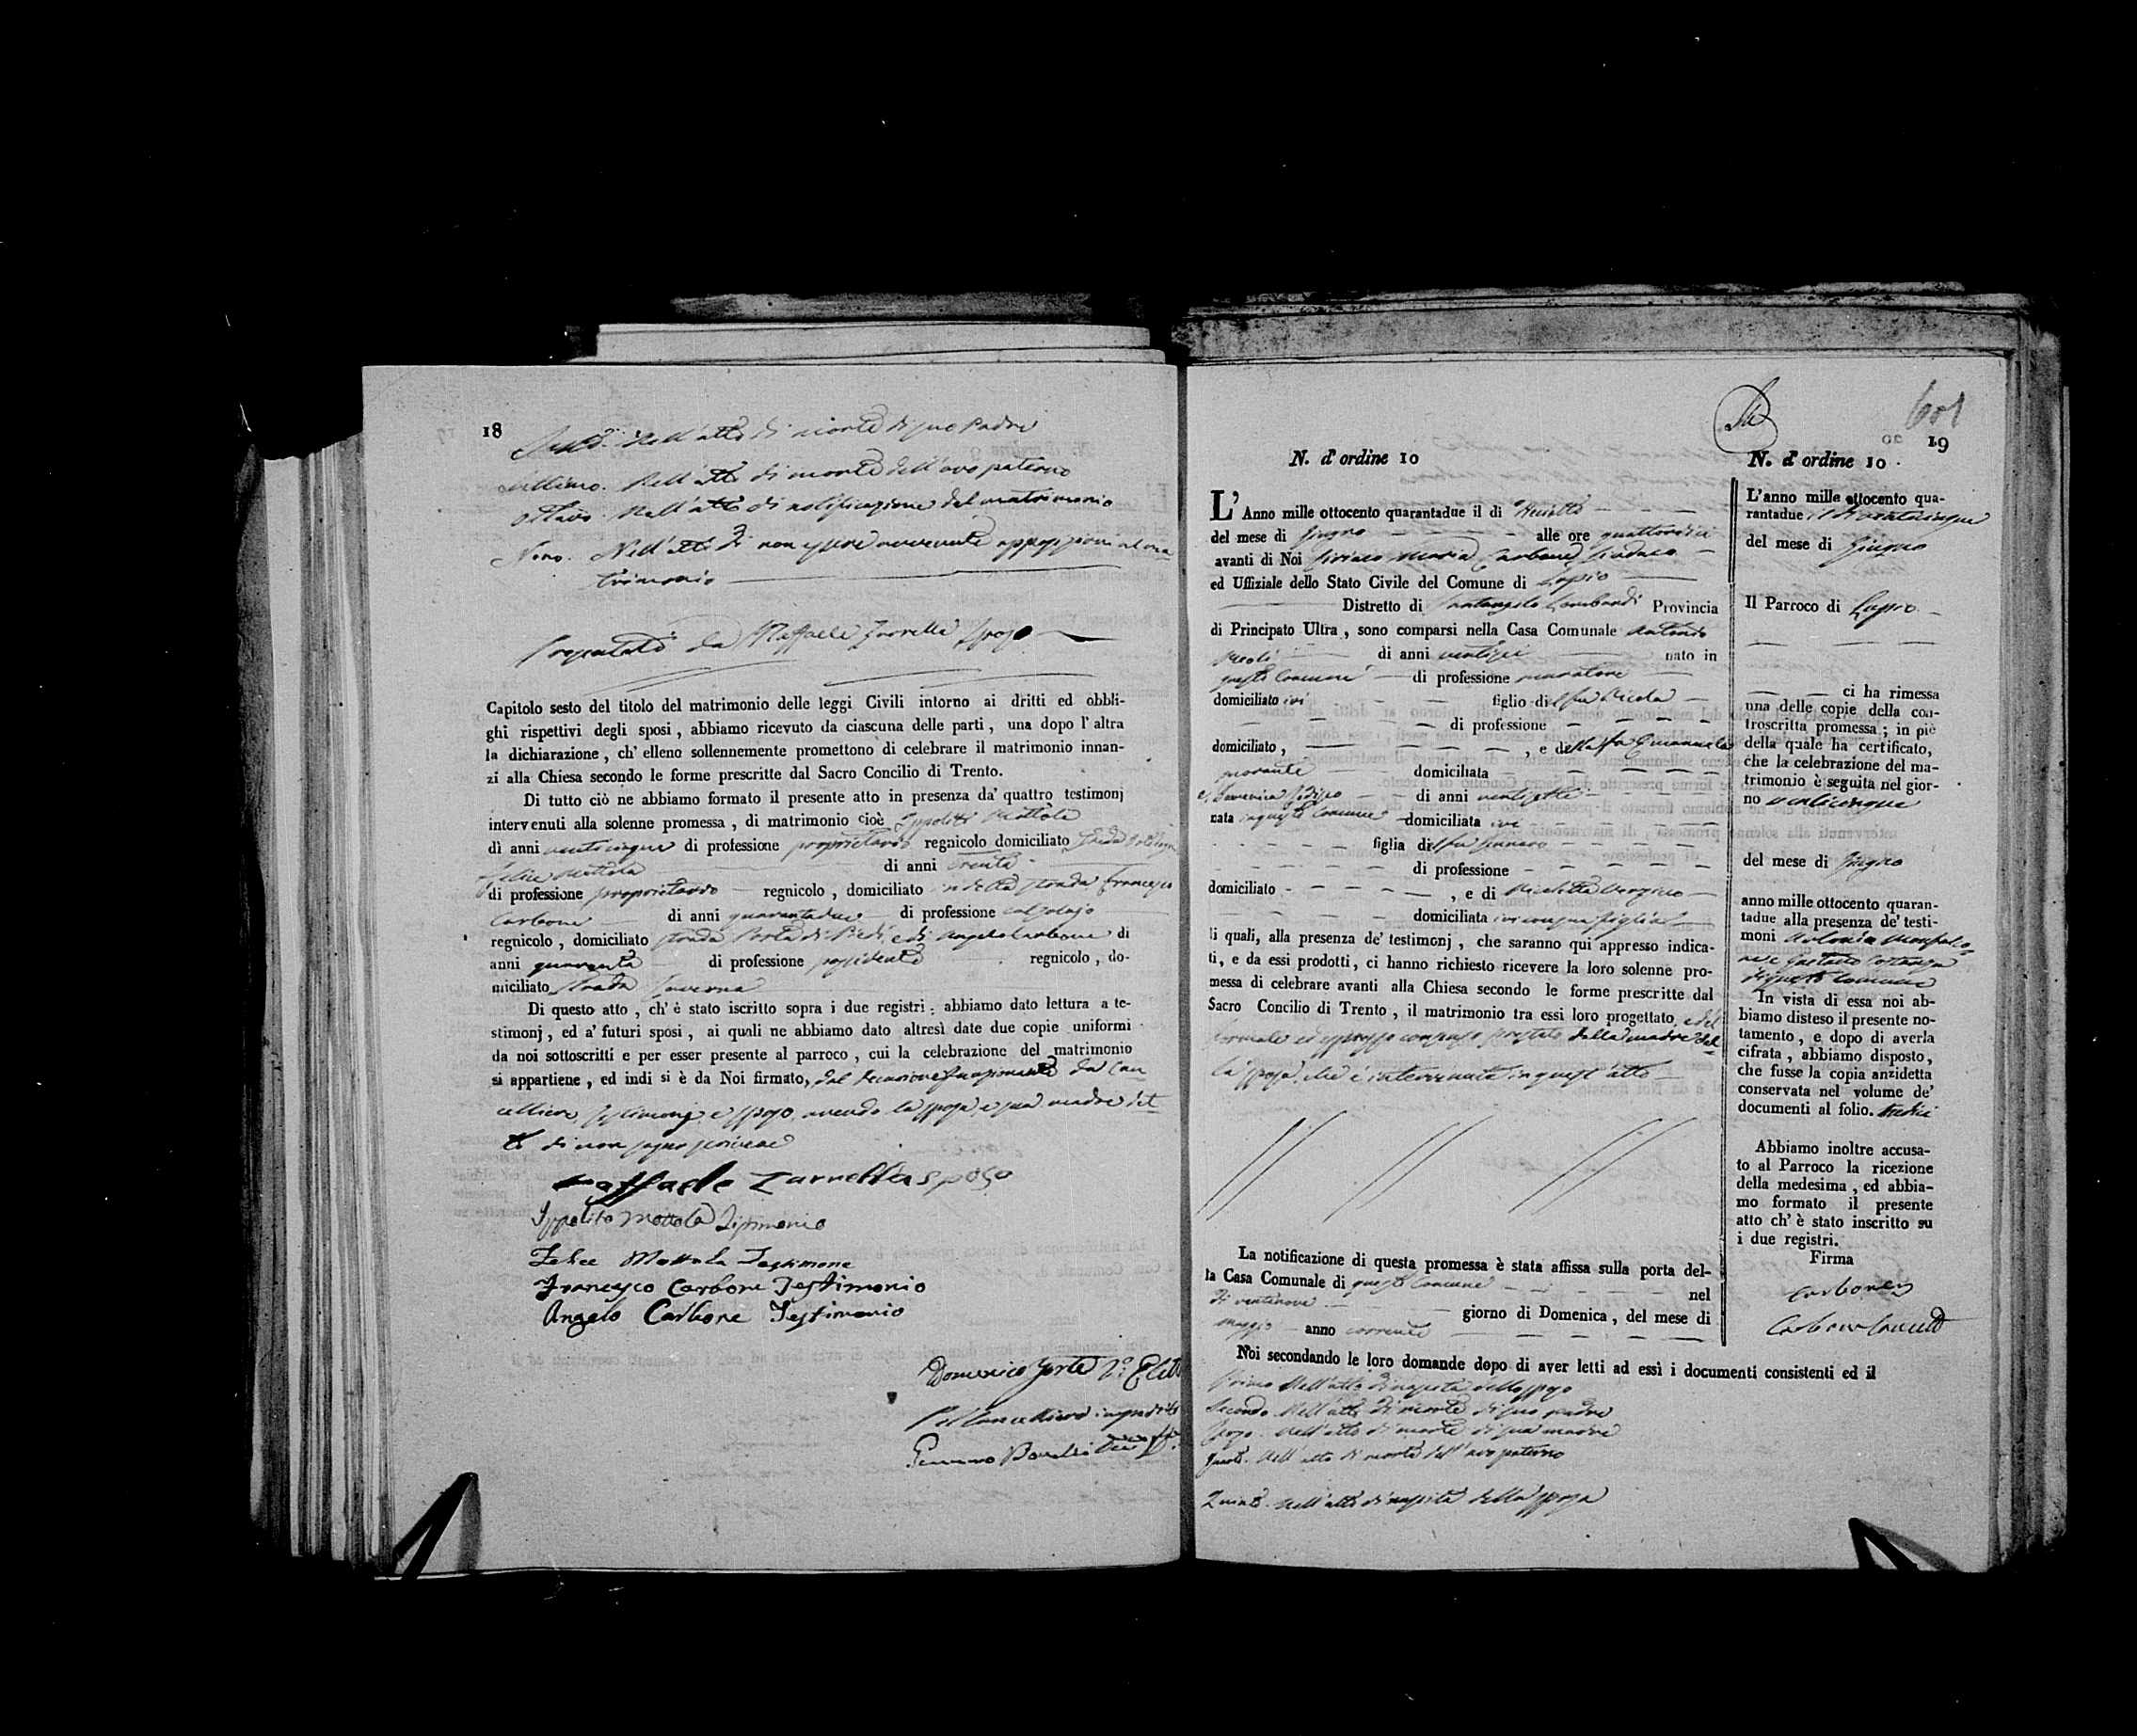 18
Nell'atto di morte di suo Padre
Settimo. Nell'atto di morte dell'avo paterno
Ottavo. Nell'atto di notificazione del matrimonio
Nono. Nell'atto di non essere avvenuta opposizione al ma
trimonio
Presentati da Raffaele Sposo
Capitolo sesto del titolo del matrimonio delle leggi Civili intorno ai dritti ed obbli-
ghi rispettivi degli sposi, abbiamo ricevuto da ciascuna delle parti, una dopo l'altra
la dichiarazione, ch'elleno sollennemente promettono di celebrare il matrimonio innan-
zi alla Chiesa secondo le forme prescritte dal Sacro Concilio di Trento.
Di tutto ciò ne abbiamo formato il presente atto in presenza da' quattro testimonj
intervenuti alla solenne promessa, di matrimonio cioè Ippolito Mottola
di anni venticinque di professione proprietario regnicolo domiciliato strada
Felice Mottola di anni trenta
di professione proprietario regnicolo, domiciliato in detta strada Francesco
Carbone di anni quarantadue di professione calzolajo
regnicolo, domiciliato strada Porta di Piedi, e di Angelo Carbone di
anni quaranta di professione possidente regnicolo, do-
miciliato strada Taverna
Di questo atto, ch'è stato iscritto sopra i due registri: abbiamo dato lettura a te-
stimonj, ed a' futuri sposi, ai quali ne abbiamo dato altresì date due copie uniformi
da noi sottoscritti e per esser presente al parroco, cui la celebrazione del matrimonio
si appartiene, ed indi si è da Noi firmato, dal Decurione funzionante da Can
celliere, testimonj e sposo, avendo la sposa, e sua madre det
to di non saper scrivere
Raffaele Zarrella sposo
Ippolito Mottola Testimonio
Felice Mottola Testimone
Francesco Carbone Testimonio
Angelo Carbone Testimonio
Domenico Forte
Pel Cancelliere impedito
19
N. d'ordine 10
L'Anno mille ottocento quarantadue il di
del mese di Giugno alle ore quattordici
avanti di Noi Ciriaco Maria Carbone Sindaco
ed Uffiziale dello Stato Civile del Comune di Lapio
Distretto di Santangelo Lombardi Provincia
di Principato Ultra, sono comparsi nella Casa Comunale Antonio
di anni ventisei nato in
questo Comune di professione muratore
domiciliato ivi figlio di fu Nicola
di professione
domiciliato, , e della fu Emanuela
domiciliata
e Domenica di anni ventisette
nata in questo Comune domiciliata ivi
figlia di fu Gennaro
di professione
domiciliato , e di Nicoletta
domiciliata ivi con sua figlia
li quali, alla presenza de' testimonj, che saranno qui appresso indica-
ti, e da essi prodotti, ci hanno richiesto ricevere la loro solenne pro-
messa di celebrare avanti alla Chiesa secondo le forme prescritte dal
Sacro Concilio di Trento, il matrimonio tra essi loro progettato, e del
formale ed espresso consenso prestato dalla madre del
la sposa, che è intervenuta in quest'atto
La notificazione di questa promessa è stata affissa sulla porta del-
la Casa Comunale di questo Comune nel
dì ventinove giorno di Domenica, del mese di
maggio anno corrente
Noi secondando le loro domande dopo di aver letti ad essi i documenti consistenti ed il
Primo Nell'atto di nascita dello sposo
Secondo. Nell'atto di morte di suo padre
Terzo. Nell'atto di morte di sua madre
Quarto. Nell'atto di morte dell'avo paterno
Quinto. Nell'atto di nascita della sposa
N. d'ordine 10
L'anno mille ottocento qua-
rantadue il dì venticinque
del mese di Giugno
Il Parroco di Lapio
ci ha rimessa
una delle copie della con-
troscritta promessa; in piè
della quale ha certificato,
che la celebrazione del ma-
trimonio è seguita nel gior-
no venticinque
del mese di Giugno
anno mille ottocento quaran-
tadue alla presenza de' testi-
moni Antonio
e Gaetano
di questo Comune
In vista di essa noi ab-
biamo disteso il presente no-
tamento, e dopo di averla
cifrata, abbiamo disposto,
che fusse la copia anzidetta
conservata nel volume de'
documenti al folio. tredici
Abbiamo inoltre accusa-
to al Parroco la ricezione
della medesima, ed abbia-
mo formato il presente
atto ch'è stato inscritto su
i due registri.
Firma
Carbone
Carbone